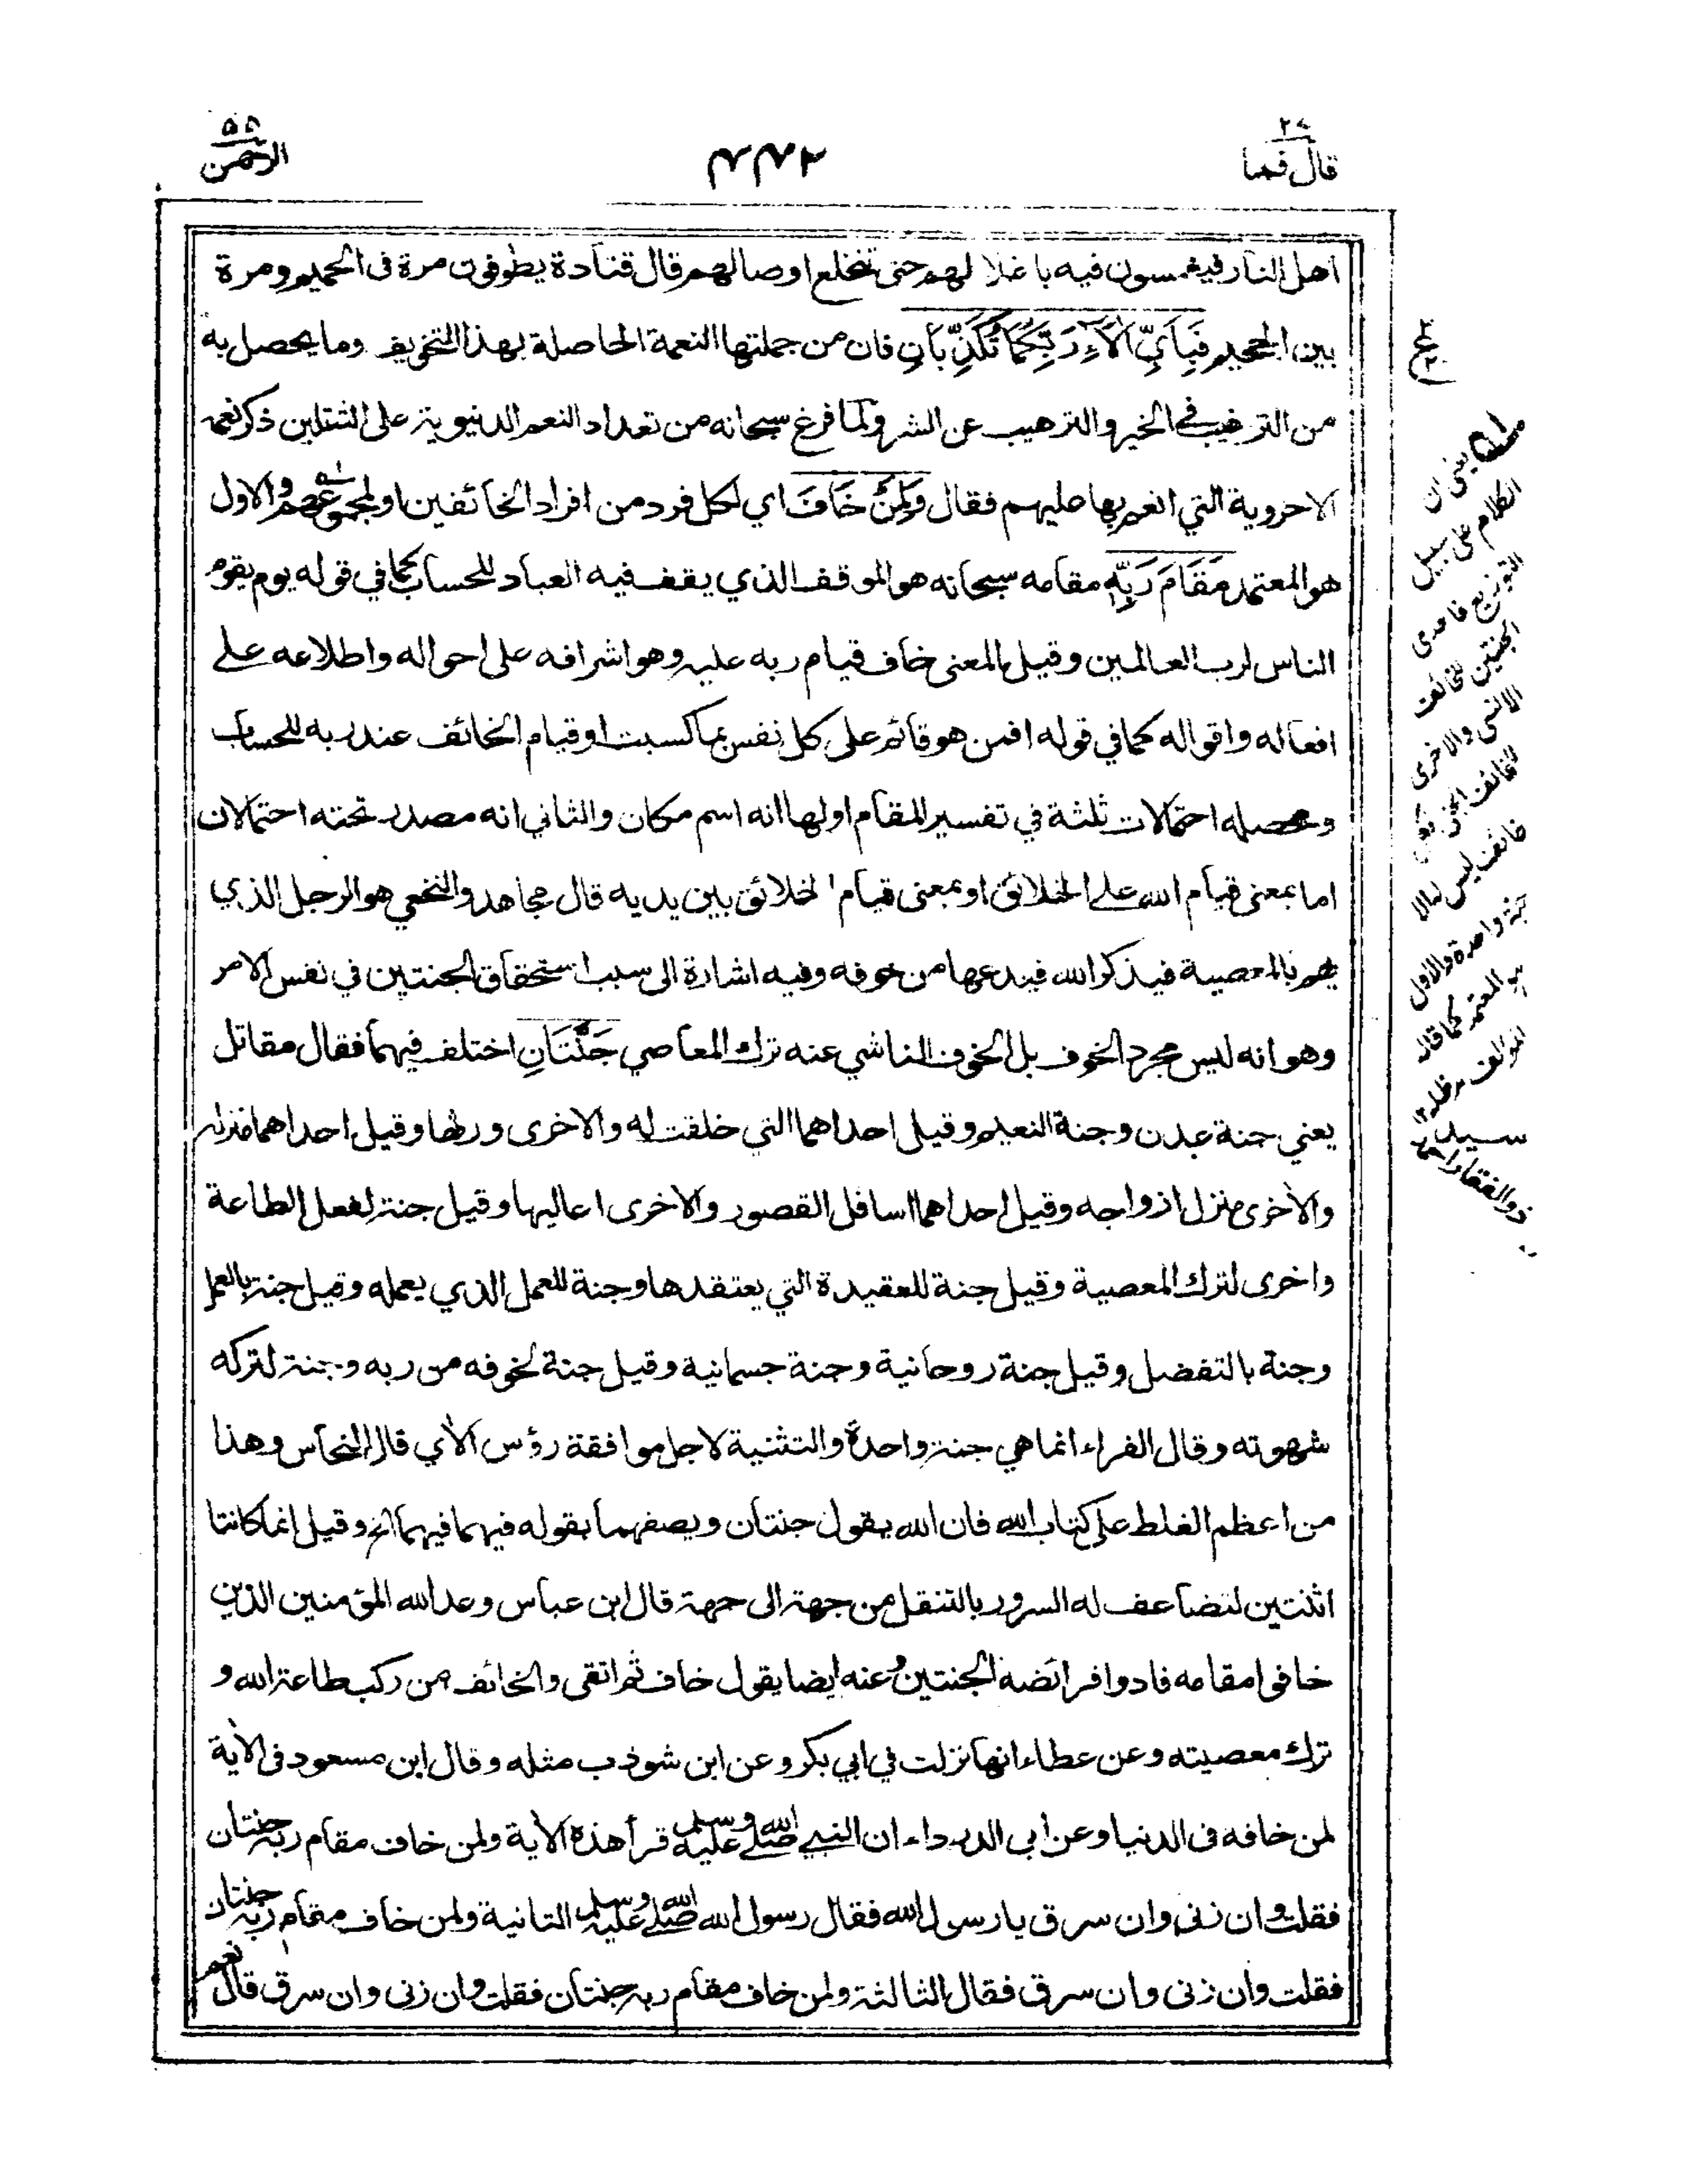 قال فما ٢٧
٢٦٦
الرحمن ٥٥
اهل النار فيغمسون فيه باغلالهم حتى تنخلع اوصالهم قال قتادة يطوفون مرة فى الحميم ومرة
بين الجحيم فَبِأَيِّ آلَاءِ رَبِّكُمَا تُكَذِّبَانِ فان من جملتها النعمة الحاصلة بهذا التخويف وما يحصل به
من الترغيب في الخير والترهيب عن الشر ولما فرغ سبحانه من تعداد النعم الدنيوية على الثقلين ذكر نعمه
الاخروية التي انعم بها عليهم فقال وَلِمَنْ خَافَ اي لكل فرد من افراد الخائفين او لمجموعهم والاول
هو المعتمد مَقَامَ رَبِّهِ مقامه سبحانه هو الموقف الذي يقف فيه العباد للحساب كما في قوله يوم يقوم
الناس لرب العالمين وقيل المعنى خاف قيام ربه عليه وهو اشرافه على احواله واطلاعه على
افعاله واقواله كما في قوله افمن هو قائم على كل نفس بما كسبت او قيام الخائف عند ربه للحساب
ومحصله احتمالات ثلثة في تفسير المقام اولها انه اسم مكان والثاني انه مصدر تحته احتمالان
اما بمعنى قيام الله على الخلائق او بمعنى قيام الخلائق بين يديه قال مجاهد والنخعي هو الرجل الذي
يهم بالمعصية فيذكر الله فيدعها من خوفه وفيه اشارة الى سبب استحقاق الجنتين في نفس الامر
وهو انه ليس مجرد الخوف بل الخوف الناشي عنه ترك المعاصي جَنَّتَانِ اختلف فيهما فقال مقاتل
يعني جنة عدن وجنة النعيم وقيل احداهما التي خلقت له والاخرى ورثها وقيل احداهما منزله
والاخرى منزل ازواجه وقيل احداهما اسافل القصور والاخرى اعاليها وقيل جنة لفعل الطاعة
واخرى لترك المعصية وقيل جنة للعقيدة التي يعتقدها وجنة للعمل الذي يعمله وقيل جنة بالعمل
وجنة بالتفضل وقيل جنة روحانية وجنة جسمانية وقيل جنة لخوفه من ربه وجنة لتركه
شهوته وقال الفراء انما هي جنة واحدة والتثنية لاجل موافقة رؤس الآي قال النحاس وهذا
من اعظم الغلط على كتاب الله فان الله يقول جنتان ويصفهما بقوله فيهما فيهما الخ وقيل انما كانتا
اثنتين لتضاعف له السرور بالتنقل من جهة الى جهة قال ابن عباس وعد الله المؤمنين الذين
خافوا مقامه فادوا فرائضه الجنتين وعنه ايضا يقول خاف ثم اتقى والخائف من ركب طاعة الله و
ترك معصيته وعن عطاء انها نزلت في ابي بكر وعن ابن شوذب مثله وقال ابن مسعود فى الاية
لمن خافه فى الدنيا وعن ابى الدرداء ان النبي صلى الله عليه وسلم قرأ هذه الاية ولمن خاف مقام ربه جنتان
فقلت وان زنى وان سرق يا رسول الله فقال رسول الله صلى الله عليه وسلم الثانية ولمن خاف مقام ربه جنتان
فقلت وان زنى وان سرق فقال الثالثة ولمن خاف مقام ربه جنتان فقلت وان زنى وان سرق قال نعم
ع
يعنى ان
الكلام على سبيل
التوزيع فاحدى
الجنتين للخائف
الانسى والاخرى
للخائف الجنى
خائف ليس له الا
جنة واحدة والاول
هو المعتمد كما قاله
المؤلف مدظله ١٢
سيد
ذوالفقار احمد